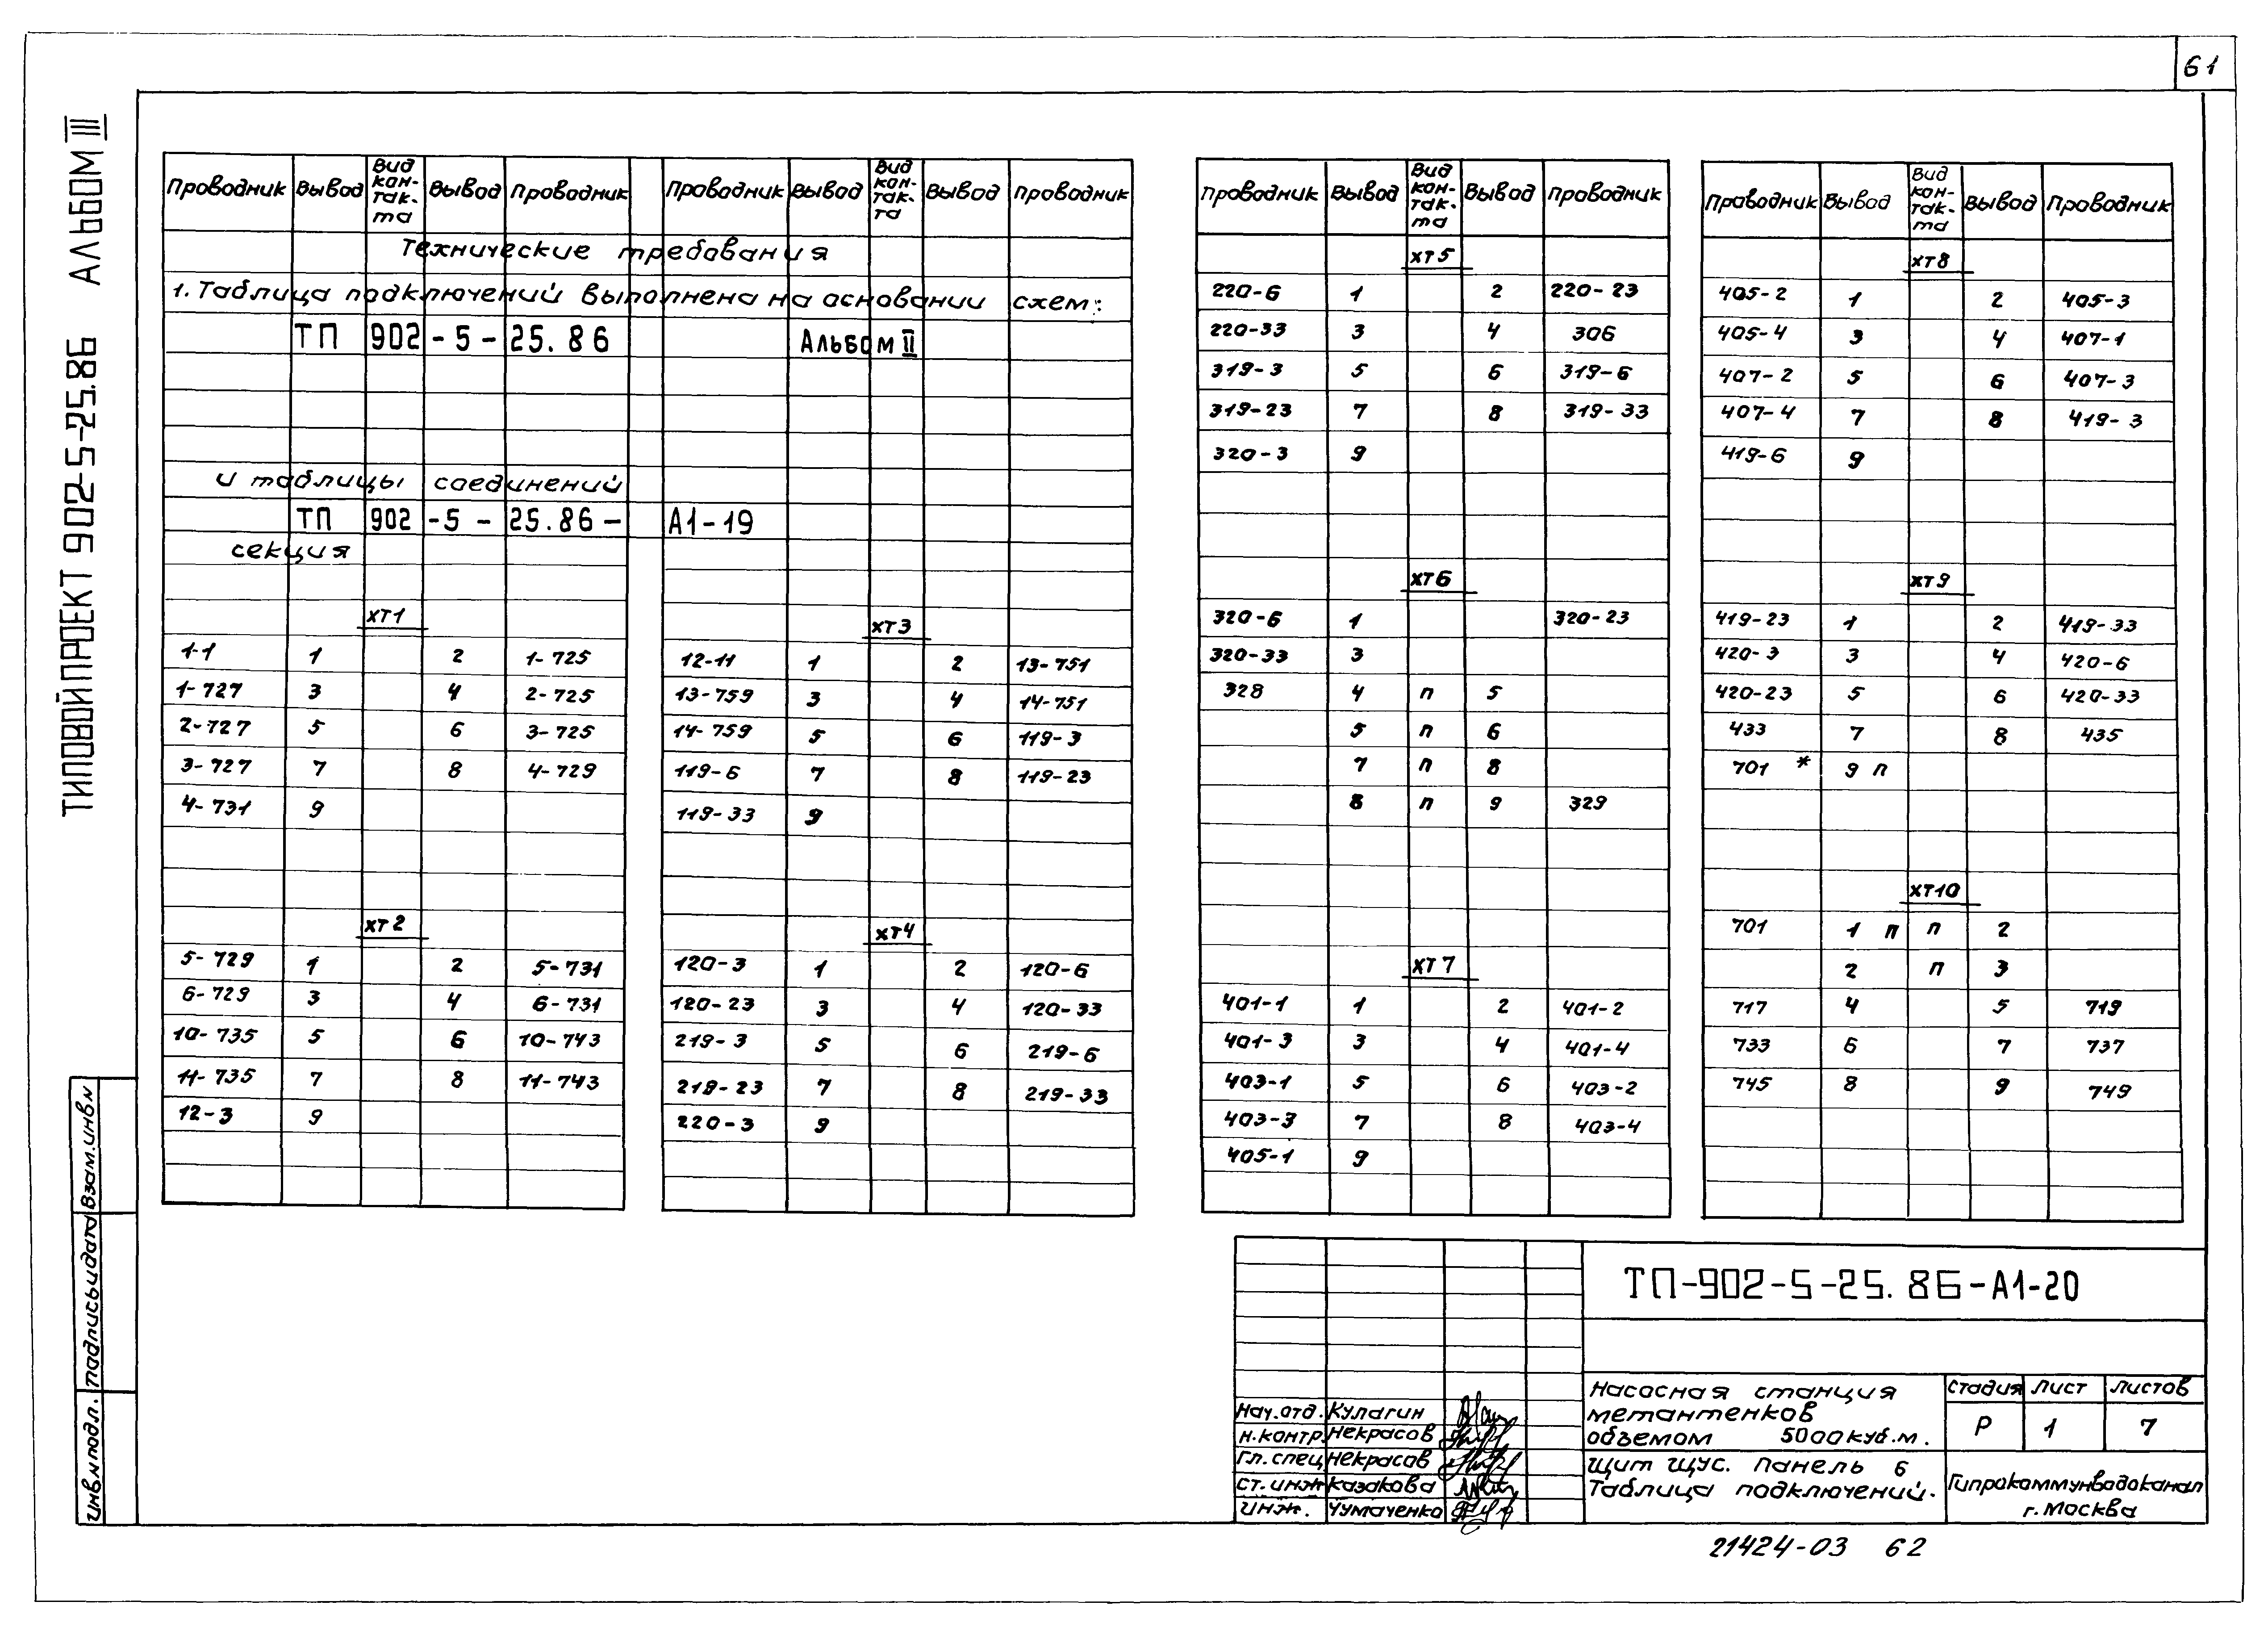 61
ТИПОВОЙ ПРОЕКТ 902-5-25.86 АЛЬБОМ III
Проводник Вывод Вид кон-так-та Вывод Проводник
Технические требования
1. Таблица подключений выполнена на основании схем:
ТП 902-5-25.86 Альбом II
и таблицы соединений
ТП 902-5-25.86-А1-19
секция
ХТ1
1-1 1 2 1-725
1-727 3 4 2-725
2-727 5 6 3-725
3-727 7 8 4-729
4-731 9
ХТ2
5-729 1 2 5-731
6-729 3 4 6-731
10-735 5 6 10-743
11-735 7 8 11-743
12-3 9
Проводник Вывод Вид кон-так-та Вывод Проводник
ХТ3
12-11 1 2 13-751
13-759 3 4 14-751
14-759 5 6 119-3
119-6 7 8 119-23
119-33 9
ХТ4
120-3 1 2 120-6
120-23 3 4 120-33
219-3 5 6 219-6
219-23 7 8 219-33
220-3 9
Проводник Вывод Вид кон-так-та Вывод Проводник
ХТ5
220-6 1 2 220-23
220-33 3 4 306
319-3 5 6 319-6
319-23 7 8 319-33
320-3 9
ХТ6
320-6 1 320-23
320-33 3
328 4 п 5
5 п 6
7 п 8
8 п 9 329
ХТ7
401-1 1 2 401-2
401-3 3 4 401-4
403-1 5 6 403-2
403-3 7 8 403-4
405-1 9
Проводник Вывод Вид кон-так-та Вывод Проводник
ХТ8
405-2 1 2 405-3
405-4 3 4 407-1
407-2 5 6 407-3
407-4 7 8 419-3
419-6 9
ХТ9
419-23 1 2 419-33
420-3 3 4 420-6
420-23 5 6 420-33
433 7 8 435
701 * 9 п
ХТ10
701 1 п п 2
2 п 3
717 4 5 719
733 6 7 737
745 8 9 749
Инв.№ подл. Подпись и дата Взам.инв.№
ТП-902-5-25.86-А1-20
Нач.отд. Кулагин
Н.контр. Некрасов
Гл.спец. Некрасов
Ст.инж. Казакова
Инж. Чумаченко
Насосная станция
метантенков
объемом 5000 куб.м.
Щит ЩУС. Панель 6
Таблица подключений.
Стадия Лист Листов
Р 1 7
Гипрокоммунводоканал
г.Москва
21424-03 62